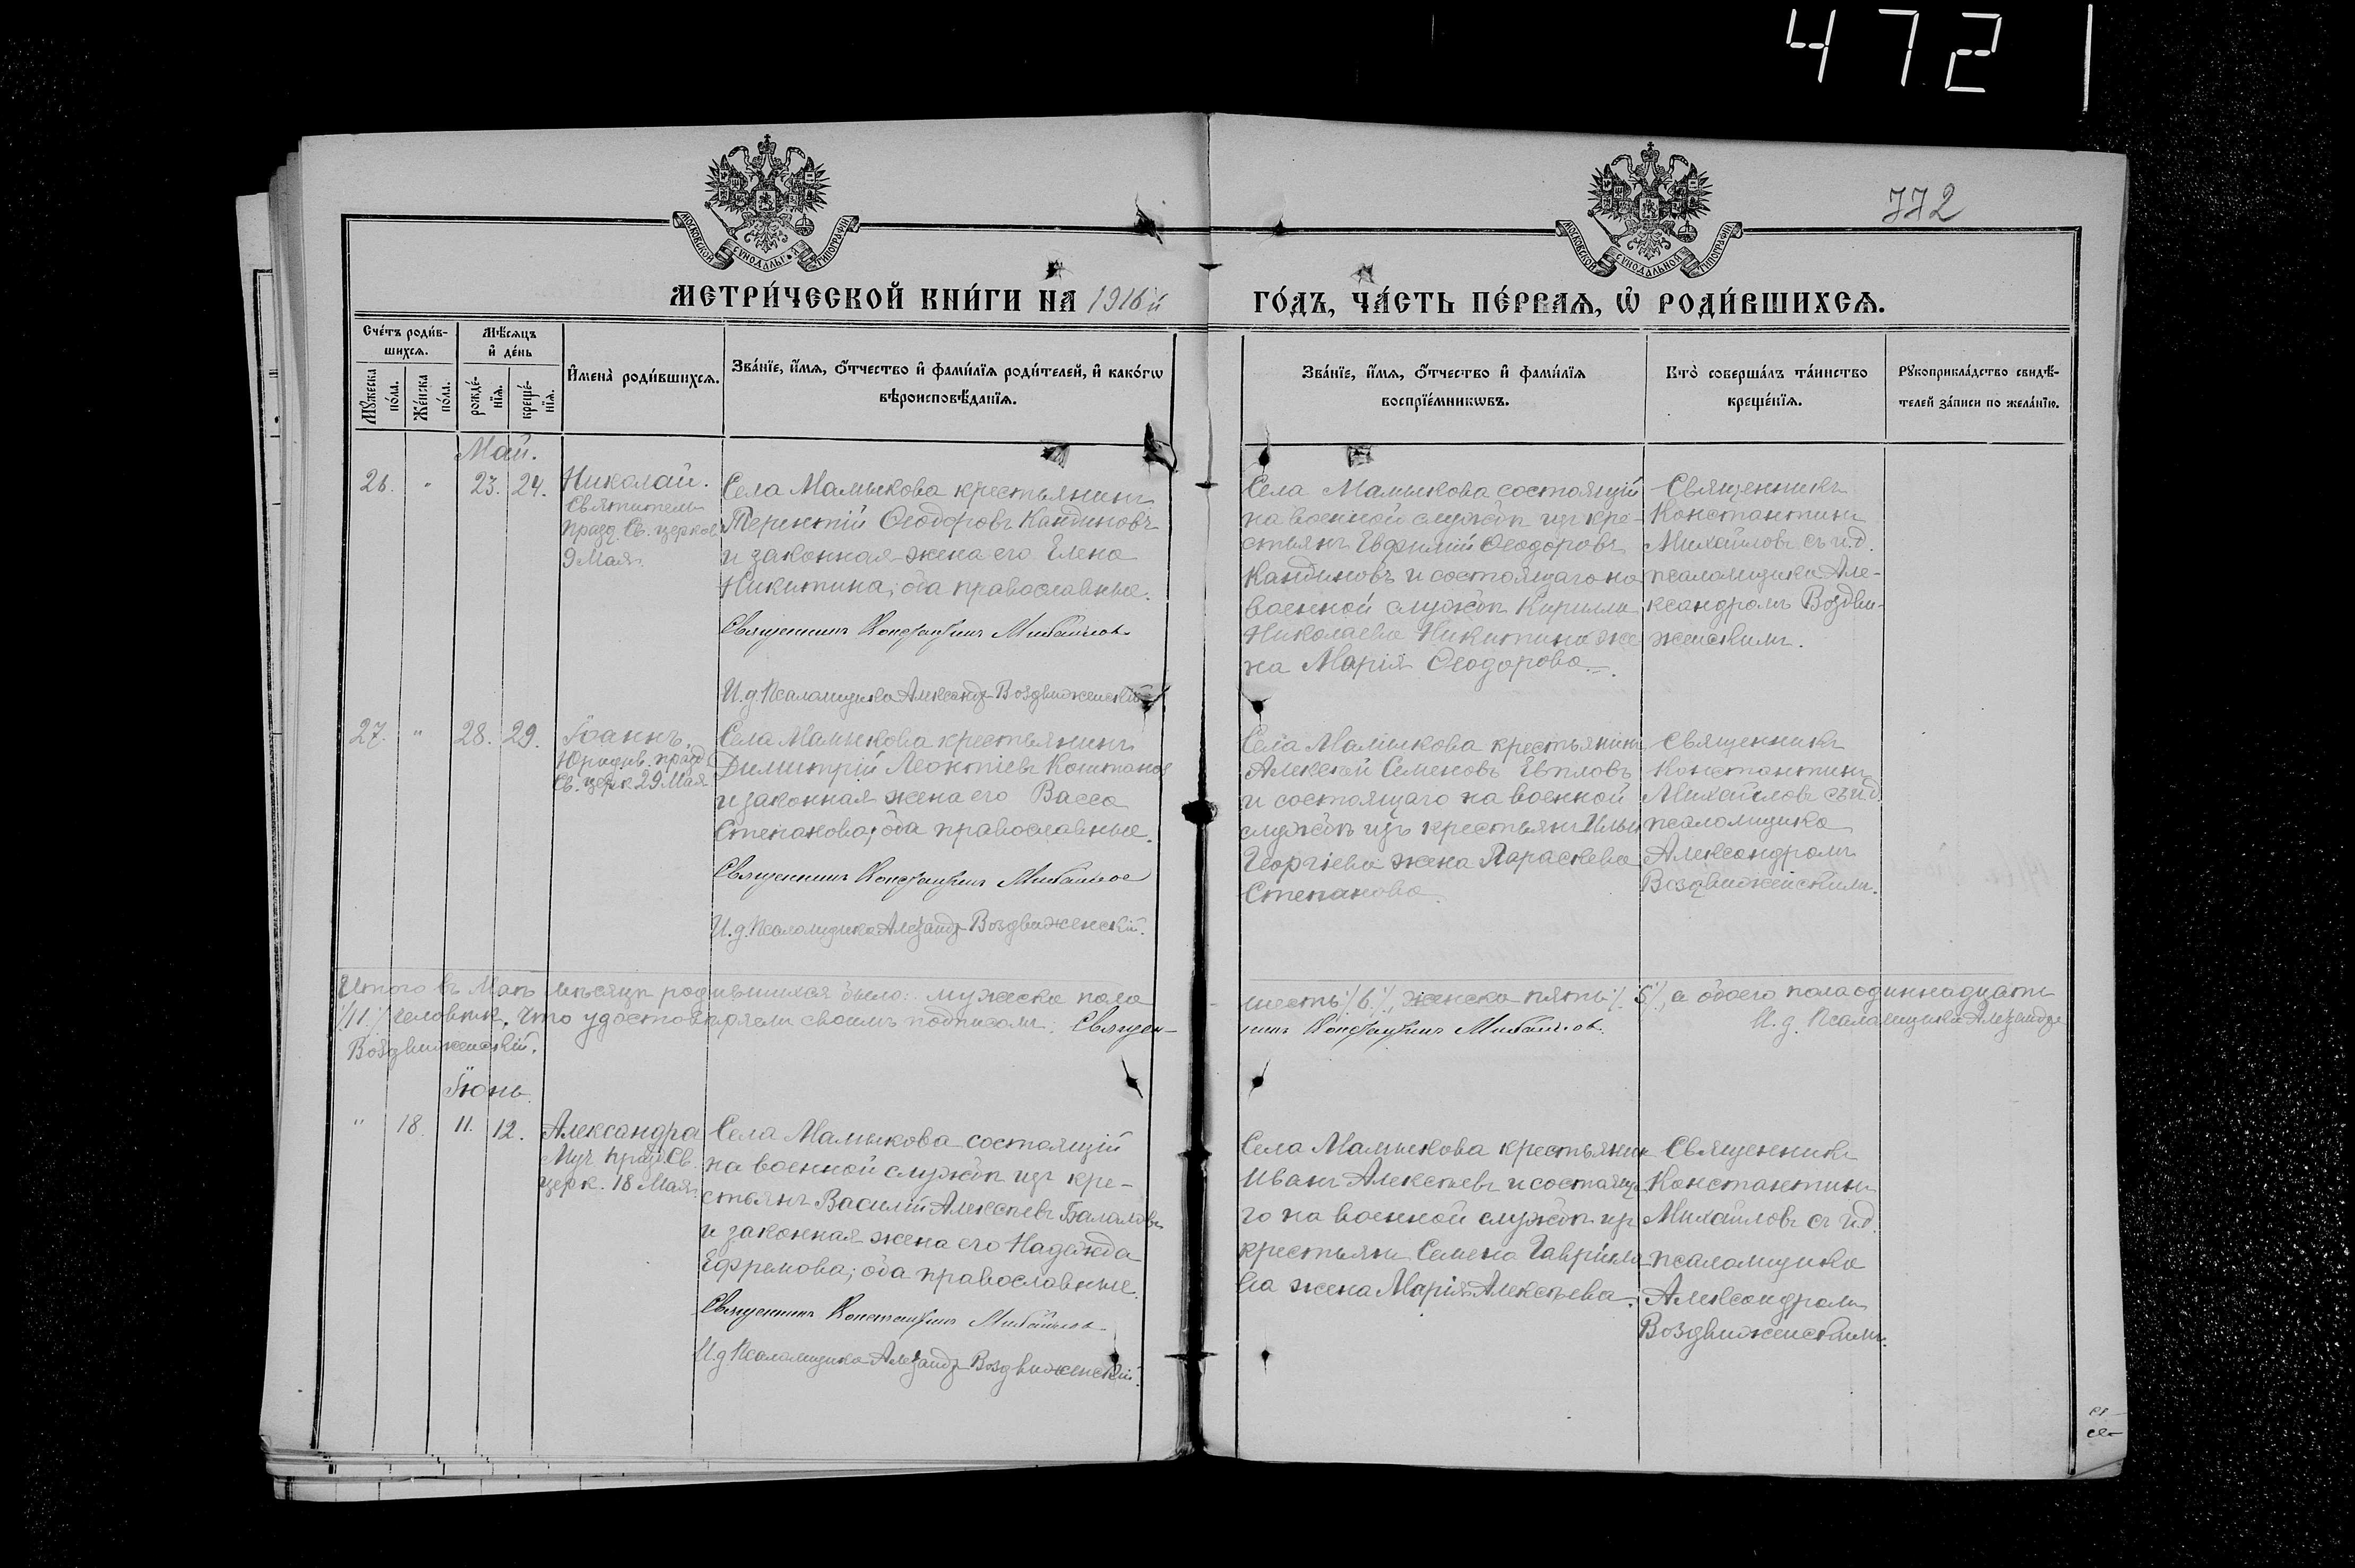 4721
772
МОСКОВСКОЙ СУНОДАЛЬНОЙ ТИПОГРАФІИ
МОСКОВСКОЙ СУНОДАЛЬНОЙ ТИПОГРАФІИ
МЕТРИ́ЧЕСКОЙ КНИ́ГИ НА 1916й ГО́ДЪ, ЧА́СТЬ ПЕ́РВАѦ, Ѡ РОДИ́ВШИХСѦ.
Сче́тъ роди́в-
шихсѧ.
Мѣ́сѧцъ
и҆ де́нь
Мꙋ́жеска
по́ла.
Же́нска
по́ла.
рожде́-
нїѧ.
креще́-
нїѧ.
И҆мена̀ роди́вшихсѧ.
Зва́нїе, и҆́мѧ, ѻ҆́тчество и҆ фами́лїѧ роди́телей, и҆ како́гѡ
вѣроисповѣ́данїѧ.
Зва́нїе, и҆́мѧ, ѻ҆́тчество и҆ фами́лїѧ
воспрїе́мникѡвъ.
Кто̀ соверша́лъ та́инство
креще́нїѧ.
Рꙋкоприкла́дство свидѣ́-
телей за́писи по жела́нїю.
Май.
26. " 23. 24.
Николай.
Святитель
празд. Св. церков
9 Мая.
Села Мамыкова крестьянинъ
Терентій Ѳеодоровъ Кандиновъ
и законная жена его Елена
Никитина; оба православные.
Священникъ Константинъ Михайловъ
И.д. Псаломщика Александръ Воздвиженскій
Села Мамыкова состоящій
на военной службѣ изъ кре-
стьянъ Евфимій Ѳеодоровъ
Кандиновъ и состоящаго на
военной службѣ Кирилла
Николаева Никитина же
на Марія Ѳеодорова.
Священникъ
Константинъ
Михайловъ съ и.д.
псаломщика Але-
ксандромъ Воздви-
женскимъ.
27. " 28. 29.
Іоаннъ.
Юродив. празд.
Св. церк 29 Мая
Села Мамыкова крестьянинъ
Димитрій Леонтіевъ Контанов
и законная жена его Васса
Степанова; оба православные.
Священникъ Константинъ Михайлов
И.д. Псаломщика Александръ Воздвиженскій.
Села Мамыкова крестьянинъ
Алексѣй Семеновъ Евпловъ
и состоящаго на военной
службѣ изъ крестьянъ Ильи
Георгіева жена Параскева
Степанова.
Священникъ
Константинъ
Михайловъ съ и.д.
псаломщика
Александромъ
Воздвиженскимъ.
Итого въ Маѣ мѣсяцѣ родившихся было: мужеска пола шесть /6/, женска пять /5/, а обоего пола одиннадцать
/11/ человѣкъ. Что удостовѣряемъ своимъ подписомъ: Священ-
никъ Константинъ Михайловъ. И.д. Псаломщика Александръ
Воздвиженскій.
Іюнь.
" 18. 11. 12.
Александра
Муч празд. Св.
церк. 18 Мая.
Села Мамыкова состоящій
на военной службѣ изъ кре-
стьянъ Василій Алексѣевъ Балаловъ
и законная жена его Надежда
Ефремова; оба православные.
Священникъ Константинъ Михайловъ
И.д Псаломщика Александръ Воздвиженскій.
Села Мамыкова крестьянин
Иванъ Алексѣевъ и состояща
го на военной службѣ изъ
крестьянъ Семена Гаврііла
ва жена Марія Алексѣева.
Священникъ
Константинъ
Михайловъ съ и.д.
псаломщика
Александромъ
Воздвиженскимъ.